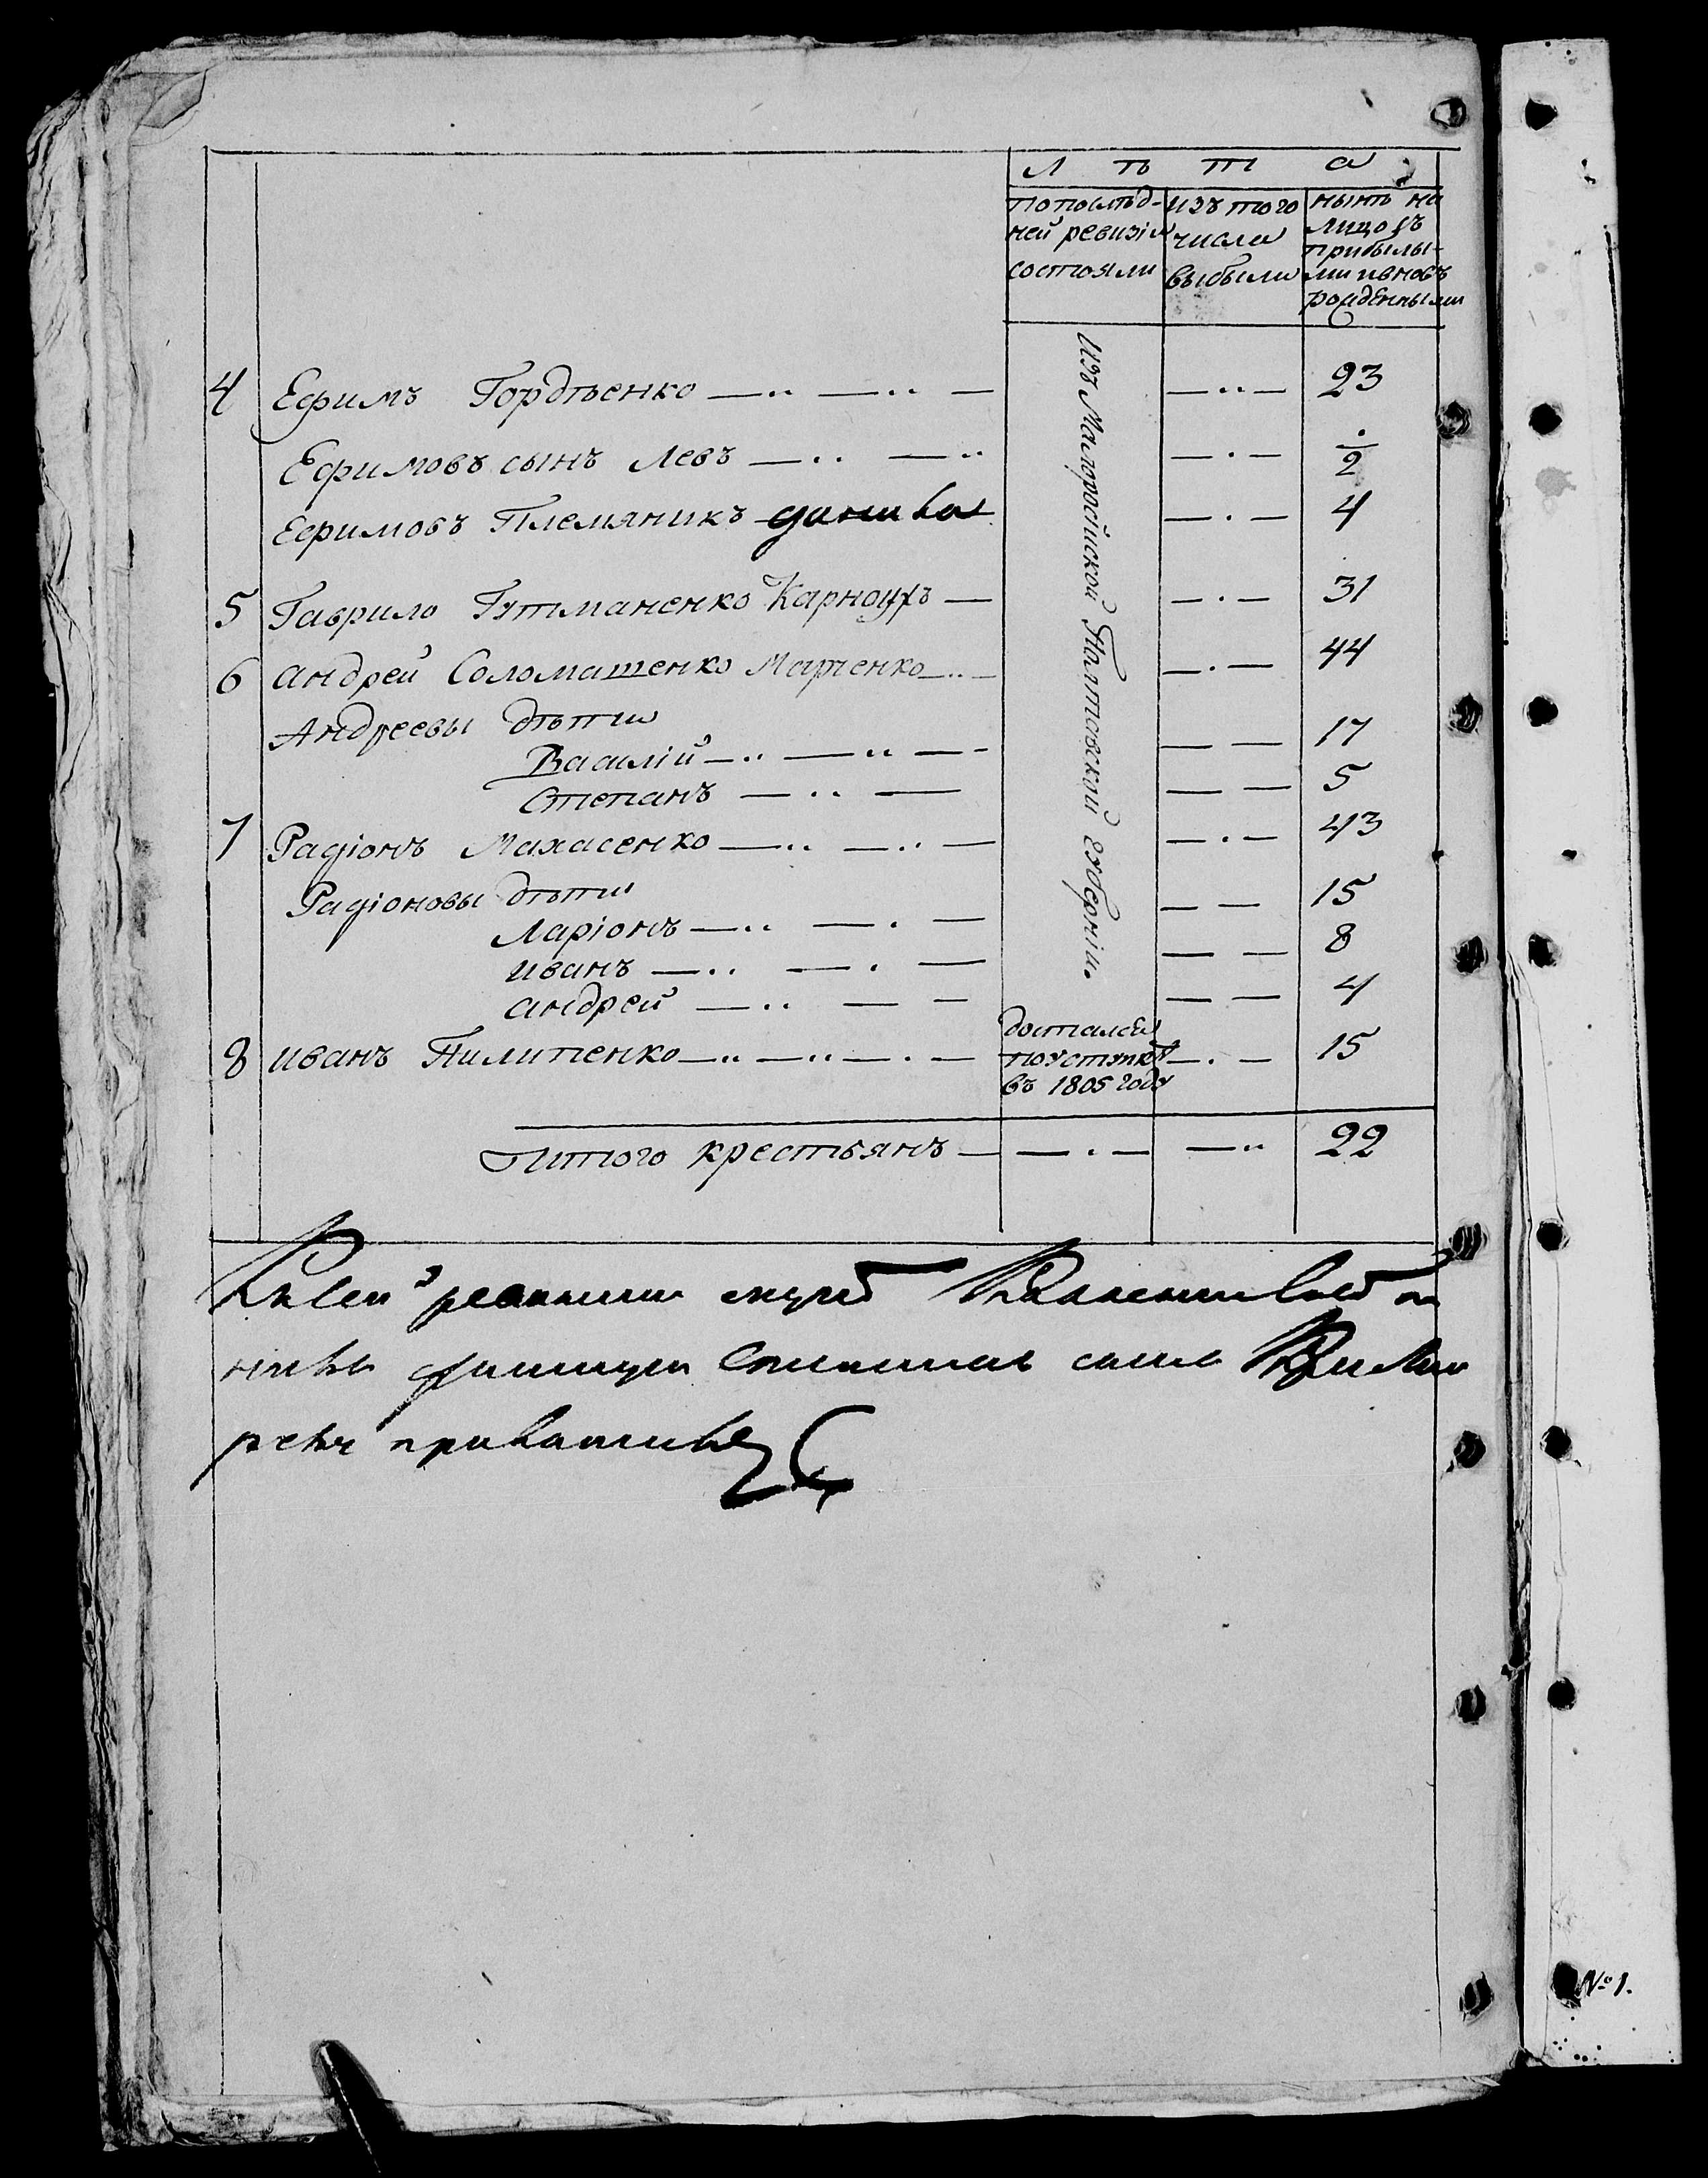 Л ѣ т а
по послѣд-
ней ревизіи
состояли
изъ того
числа
выбыли
нынѣ на
лицо съ
прибылы-
ми и вновь
рожденными
Изъ Малороссійской Палтавской губерніи.
4 Ефимъ Гордѣенко — — — 23
Ефимовъ сынъ Левъ — — — 1/2
Ефимовъ Племяникъ данила — 4
5 Гаврило Гетманенко Карноухъ — — 31
6 Андрей Соломашенко Марченко — — 44
Андреевы дѣти
Василій — — — 17
Степанъ — — — 5
7 Радіонъ Махасенко — — — 43
Радіоновы дѣти
Ларіонъ — — — 15
Иванъ — — — 8
Андрей — — — 4
8 Иванъ Пилипенко — — — 15
достался
поуступкѣ
въ 1805 году
Итого крестьянъ — — — 22
№ 1.